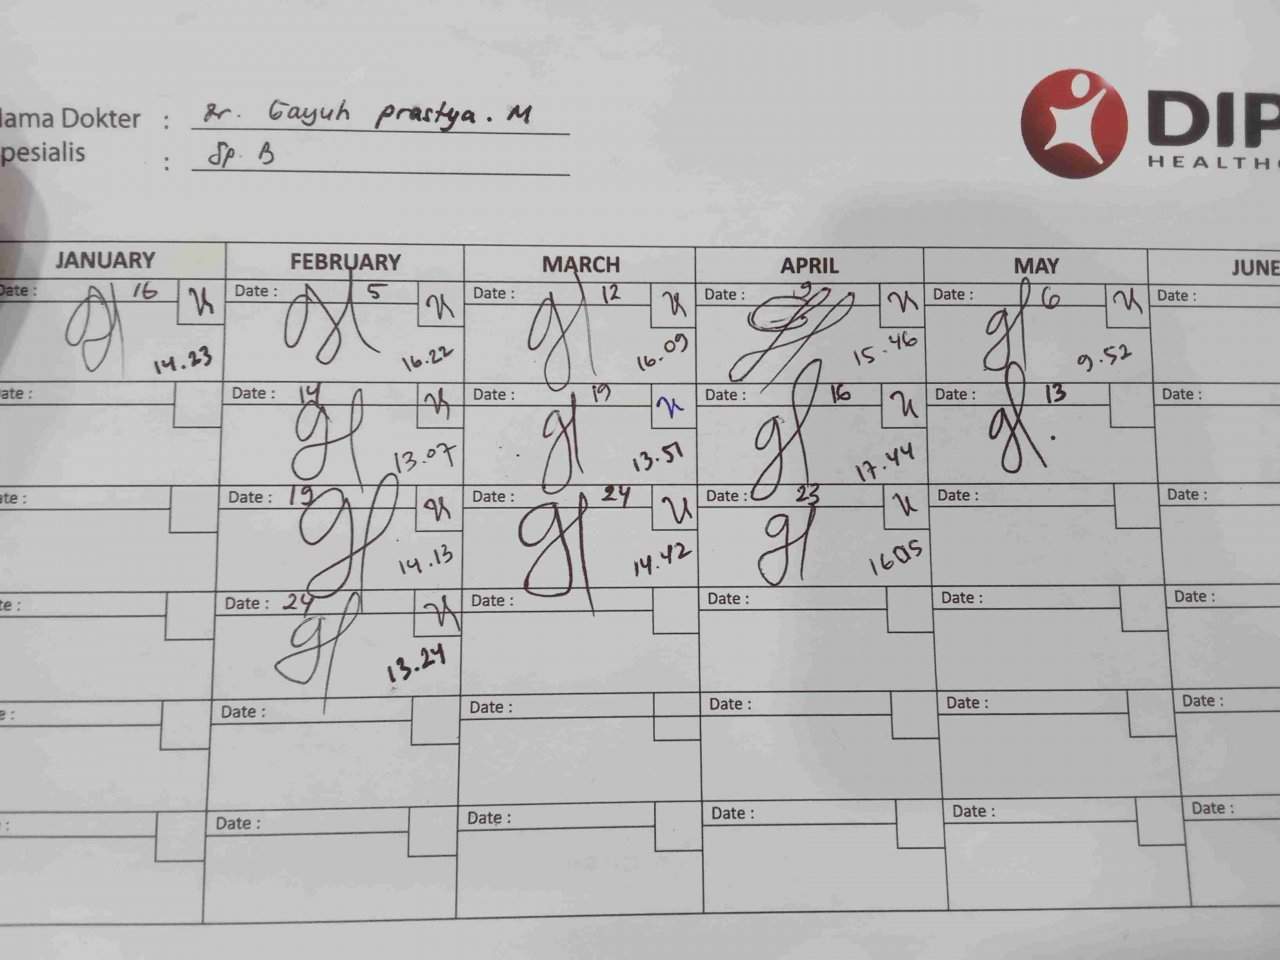 lama Dokter : dr. Gayuh prastya. M
pesialis : Sp. B
DIP
HEALTHC
JANUARY FEBRUARY MARCH APRIL MAY JUNE
Date : 16 Date : 5 Date : 12 Date : 9 Date : 6 Date :
14.23 16.22 16.09 15.46 9.52
ate : Date : 14 Date : 19 Date : 16 Date : 13 Date :
13.07 13.51 17.44
te : Date : 19 Date : 24 Date : 23 Date : Date :
14.13 14.42 16.05
te : Date : 24 Date : Date : Date : Date :
13.24
e : Date : Date : Date : Date : Date :
: Date : Date : Date : Date : Date :